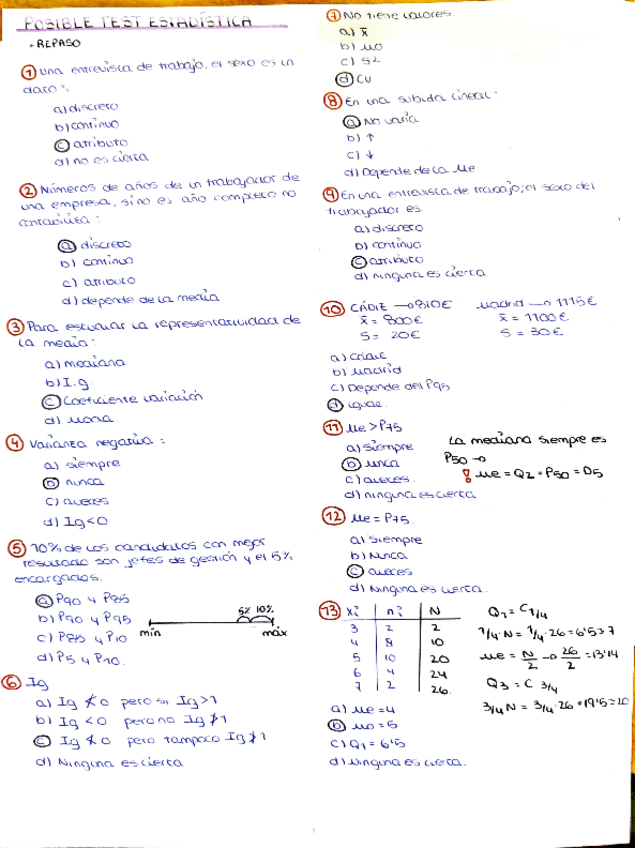 POSIBLE TEST ESTADÍSTICA
· REPASO
① una entrevista de trabajo, el sexo es un
dato:
a) discreto
b) continuo
c) atributo
d) no es cierta
② Números de años de un trabajador de
una empresa, si no es año completo no
contabiliza:
a) discreto
b) continuo
c) atributo
d) depende de la media
③ Para estudiar la representatividad de
la media:
a) mediana
b) I.g.
c) Coeficiente variación
d) moda.
④ Varianza negativa:
a) siempre
b) nunca
c) a veces
d) Ig<0
⑤ 10% de los candidatos con mejor
resultado son jefes de gestión y el 5%
encargados.
a) P90 y P85
b) P90 y P95
c) P85 y P10
d) P5 y P10.
5% 10%
min máx
⑥ Ig
a) Ig ≮ 0 pero si Ig>1
b) Ig < 0 pero no Ig ≯ 1
c) Ig ≮ 0 pero tampoco Ig ≯ 1
d) Ninguna es cierta
⑦ No tiene valores.
a) x̄
b) uo
c) S2
d) CV
⑧ En una subida lineal:
a) No varía
b) ↑
c) ↓
d) Depende de la Me
⑨ En una entrevista de trabajo; el sexo del
trabajador es
a) discreto
b) continuo
c) atributo
d) ninguna es cierta
⑩ CÁDIZ → 810€ Madrid → 1115€
x̄ = 800€ x̄ = 1100€
S = 20€ S = 30€
a) Cádiz
b) Madrid
c) Depende del P95
d) igual.
⑪ Me > P75
a) Siempre
b) nunca
c) a veces.
d) ninguna es cierta
La mediana siempre es
P50 →
! Me = Q2 = P50 = D5
⑫ Me = P75.
a) Siempre
b) Nunca
c) a veces
d) Ninguna es cierta.
⑬ x? n? N
3 2 2
4 8 10
5 10 20
6 4 24
7 2 26.
Q1 = C 1/4
1/4·N = 1/4·26 = 6'5
Me = N/2 → 26/2 = 13
Q3 = C 3/4
3/4 N = 3/4·26 = 19'5 = 20
a) Me = 4
b) Mo = 5
c) Q1 = 6'5
d) Ninguna es cierta.